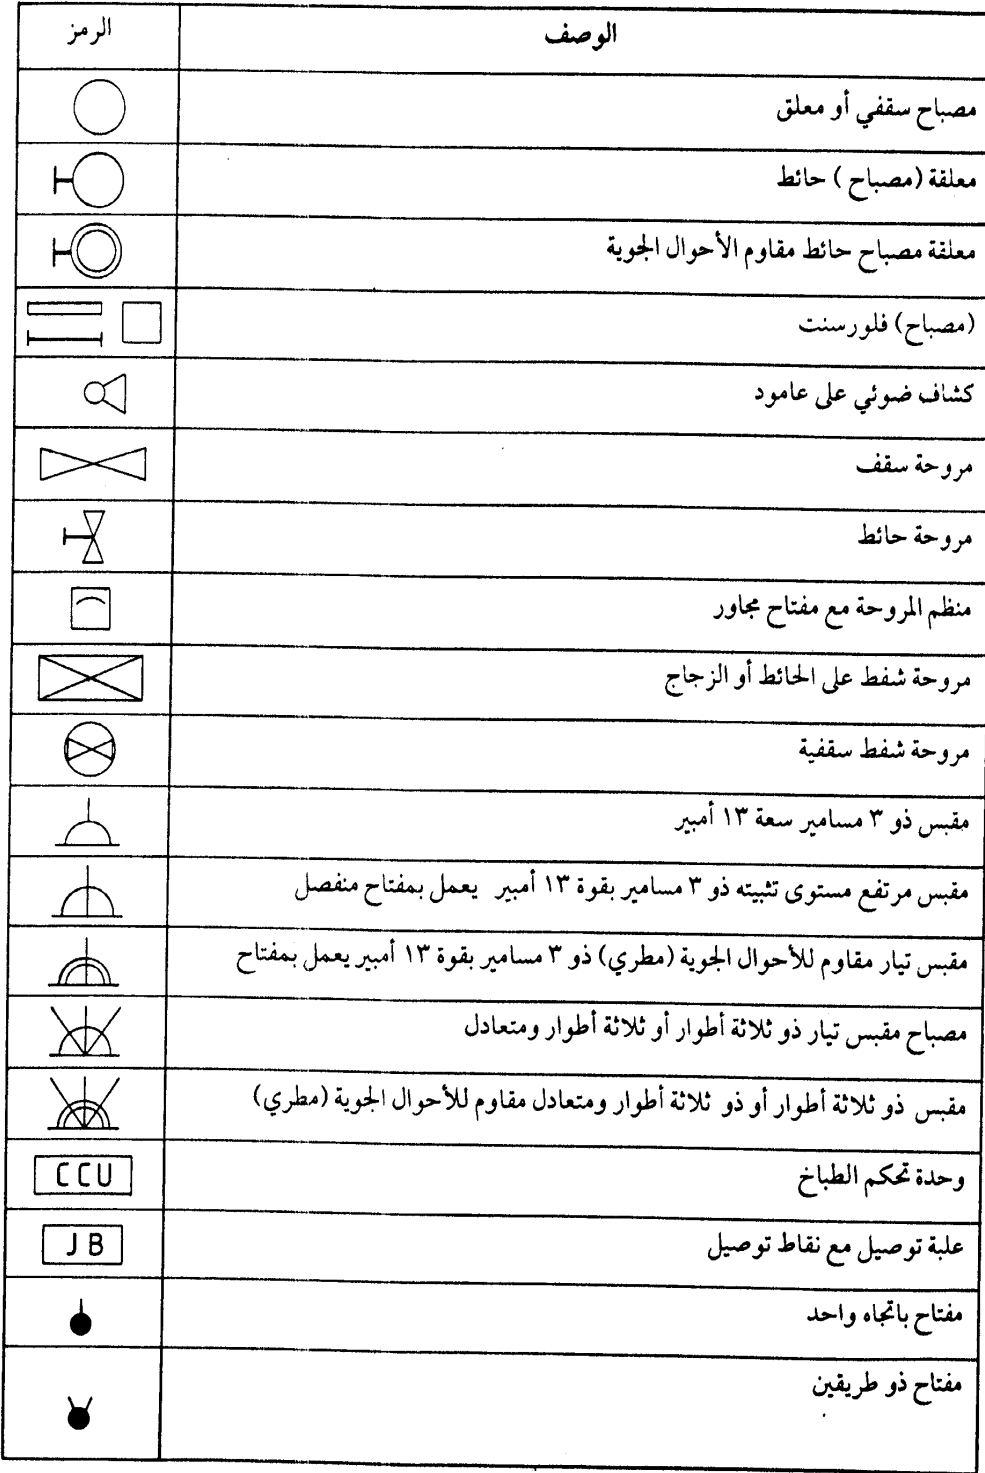 الوصف الرمز
مصباح سقفي أو معلق
معلقة (مصباح) حائط
معلقة مصباح حائط مقاوم الأحوال الجوية
(مصباح) فلورسنت
كشاف ضوئي على عامود
مروحة سقف
مروحة حائط
منظم المروحة مع مفتاح مجاور
مروحة شفط على الحائط أو الزجاج
مروحة شفط سقفية
مقبس ذو ٣ مسامير سعة ١٣ أمبير
مقبس مرتفع مستوى تثبيته ذو ٣ مسامير بقوة ١٣ أمبير يعمل بمفتاح منفصل
مقبس تيار مقاوم للأحوال الجوية (مطري) ذو ٣ مسامير بقوة ١٣ أمبير يعمل بمفتاح
مصباح مقبس تيار ذو ثلاثة أطوار أو ثلاثة أطوار ومتعادل
مقبس ذو ثلاثة أطوار أو ذو ثلاثة أطوار ومتعادل مقاوم للأحوال الجوية (مطري)
وحدة تحكم الطباخ CCU
علبة توصيل مع نقاط توصيل JB
مفتاح باتجاه واحد
مفتاح ذو طريقين